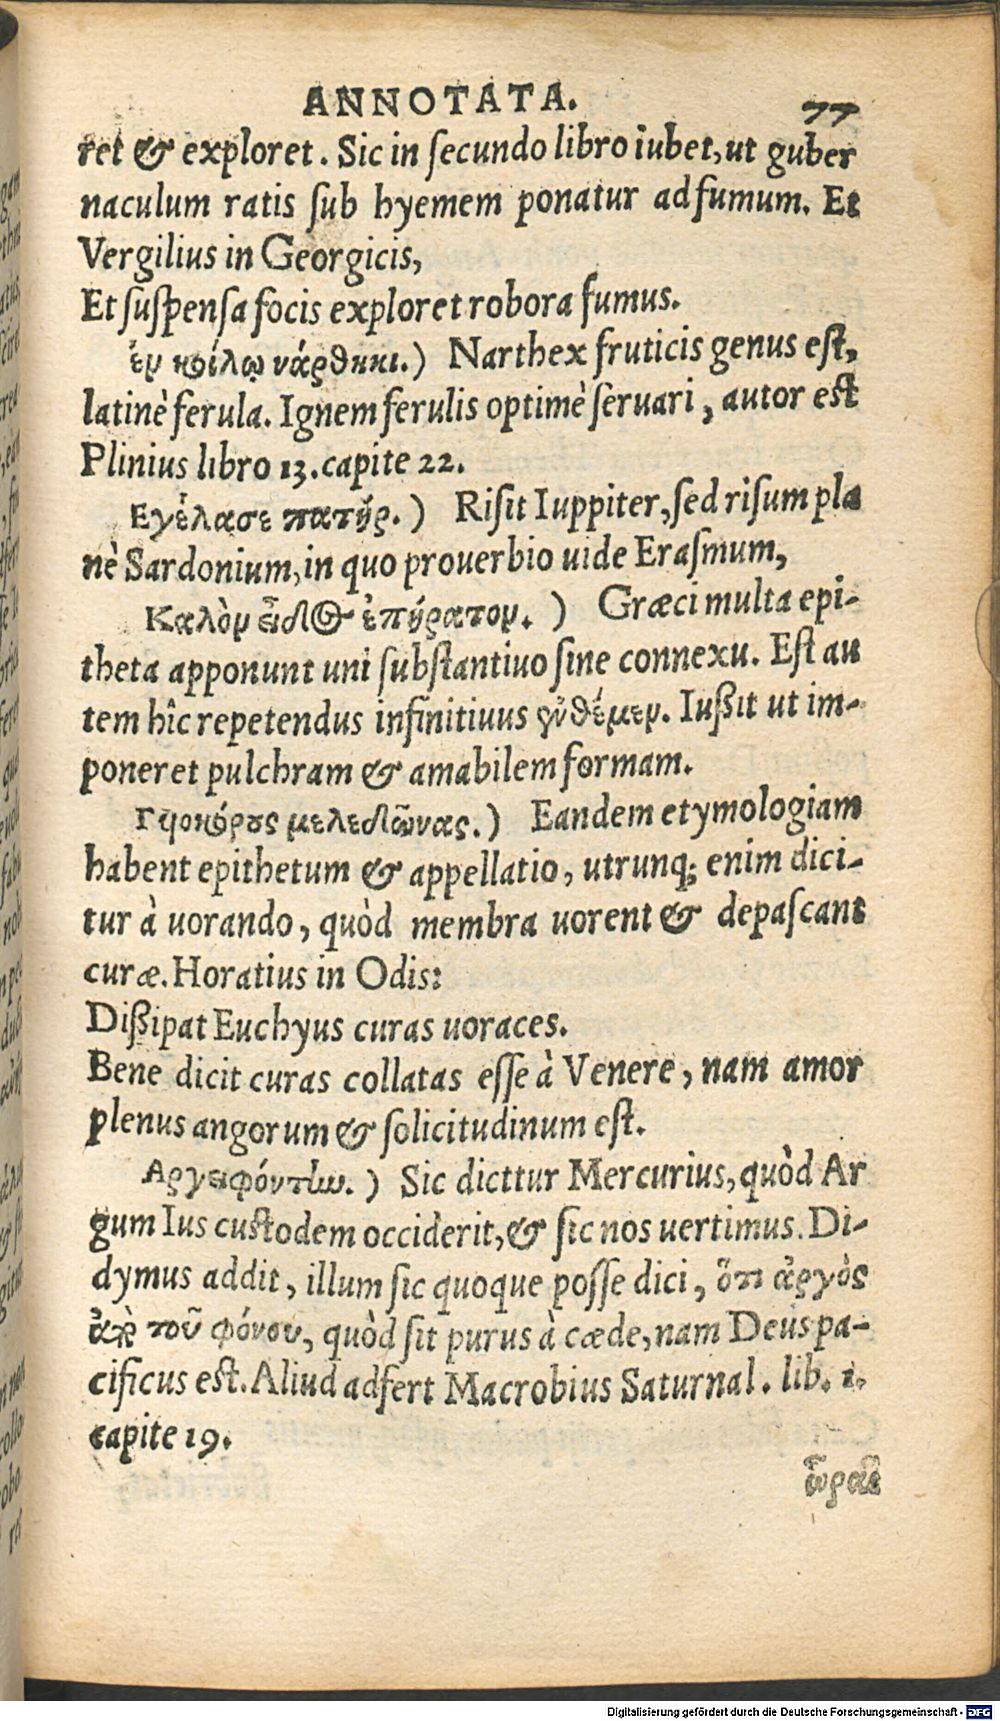 ANNOTATA. 77
ret & exploret. Sic in ſecundo libro iubet, ut guber
naculum ratis ſub hyemem ponatur ad fumum. Et
Vergilius in Georgicis,
Et ſuſpenſa focis exploret robora fumus.
ἐν κοίλῳ νάρθηκι.) Narthex fruticis genus eſt,
latinè ferula. Ignem ferulis optimè ſeruari, autor eſt
Plinius libro 13. capite 22.
Εγέλασε πατήρ.) Riſit Iuppiter, ſed riſum pla
nè Sardonium, in quo prouerbio uide Eraſmum,
Καλὸν εἶδος ἐπήρατον.) Græci multa epi-
theta apponunt uni ſubſtantiuo ſine connexu. Eſt au
tem hîc repetendus infinitiuus ἐνθέμεν. Iußit ut im-
poneret pulchram & amabilem formam.
Γυιοκόρους μελεδῶνας.) Eandem etymologiam
habent epithetum & appellatio, utrunq; enim dici-
tur à uorando, quòd membra uorent & depaſcant
curæ. Horatius in Odis:
Dißipat Euchyus curas uoraces.
Bene dicit curas collatas eſſe à Venere, nam amor
plenus angorum & ſolicitudinum eſt.
Αργειφόντην.) Sic dicttur Mercurius, quòd Ar
gum Ius cuſtodem occiderit, & ſic nos uertimus. Di-
dymus addit, illum ſic quoque poſſe dici, ὅτι ἀργὸς
παρὰ τοῦ φόνου, quòd ſit purus à cæde, nam Deus pa-
cificus eſt. Aliud adfert Macrobius Saturnal. lib. 1.
capite 19.
ὧραί
Digitalisierung gefördert durch die Deutsche Forschungsgemeinschaft - DFG